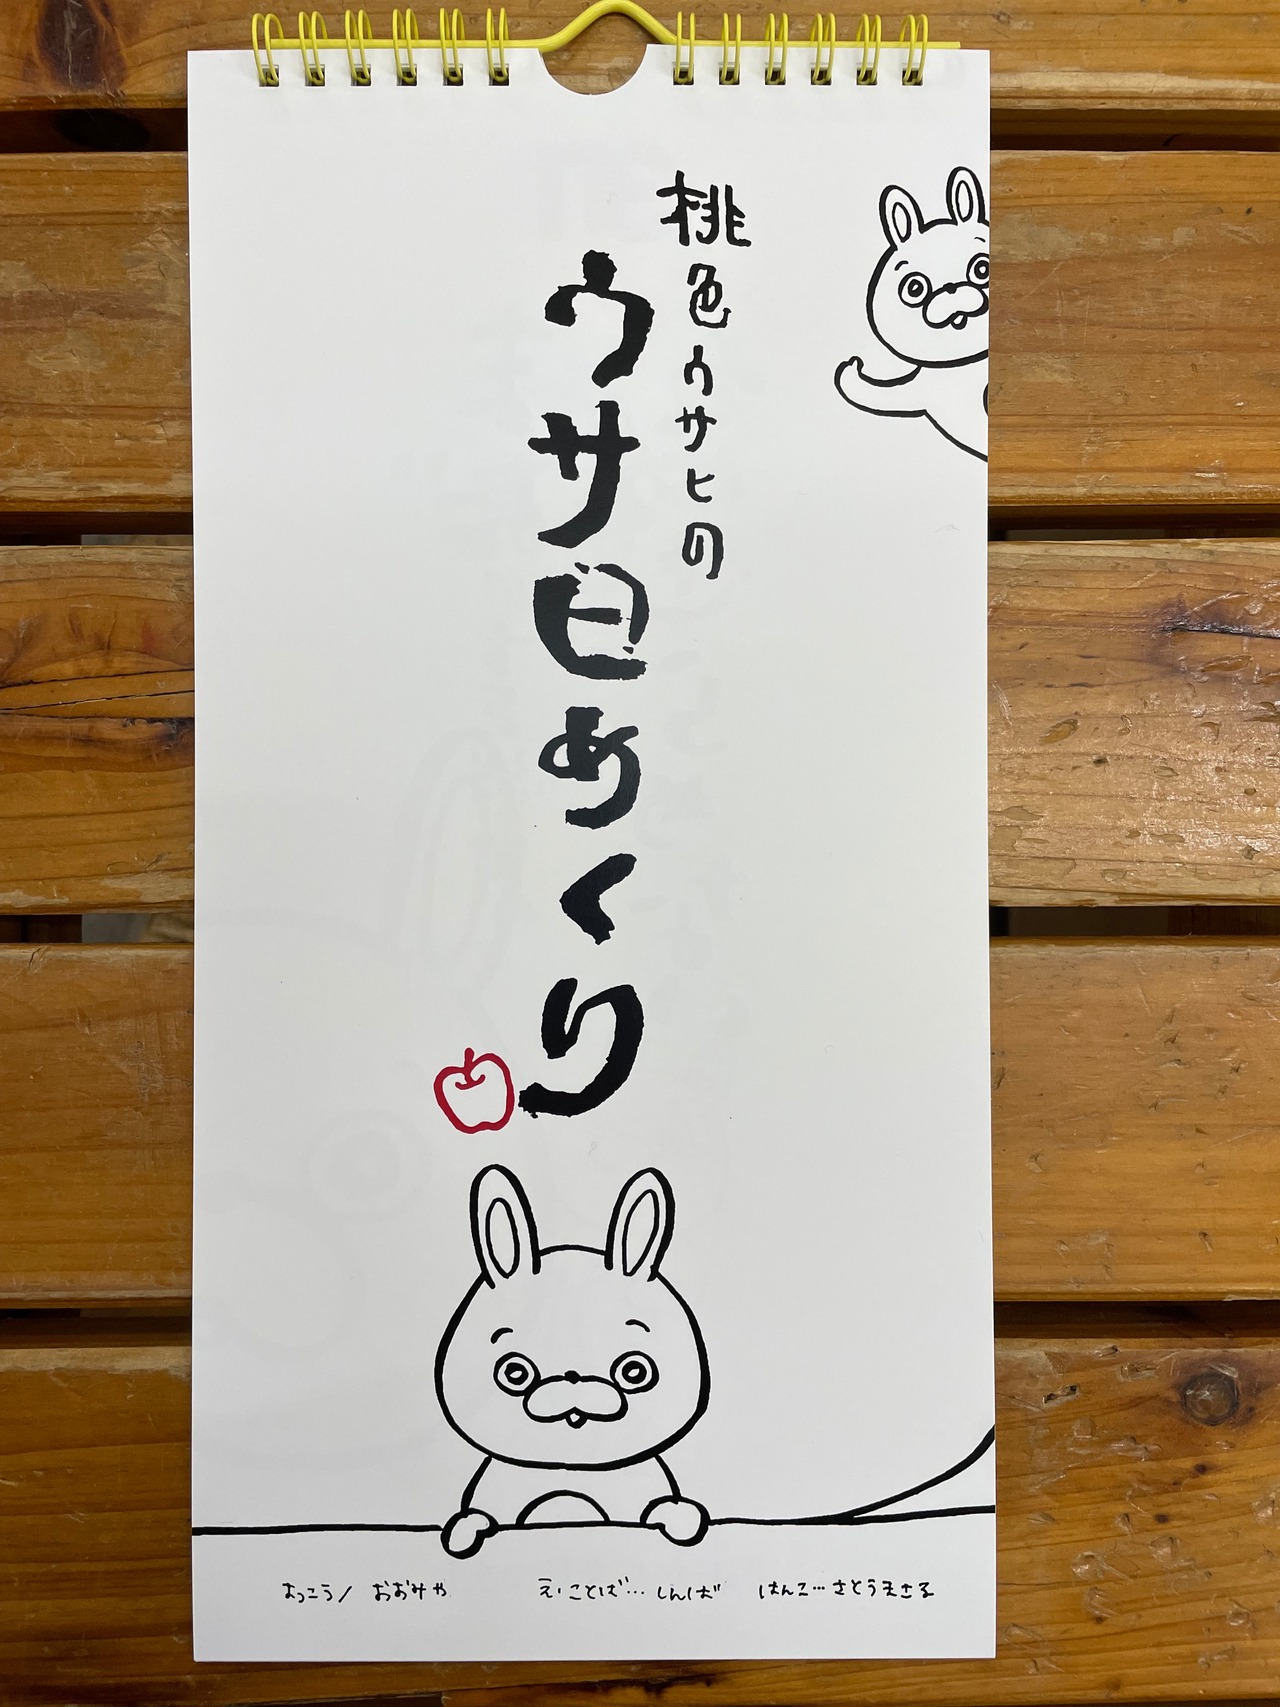 桃色ウサヒの
ウサ日めくり
はっこう/ おおみや
え・ことば… しんば
はんこ… さとうまさる